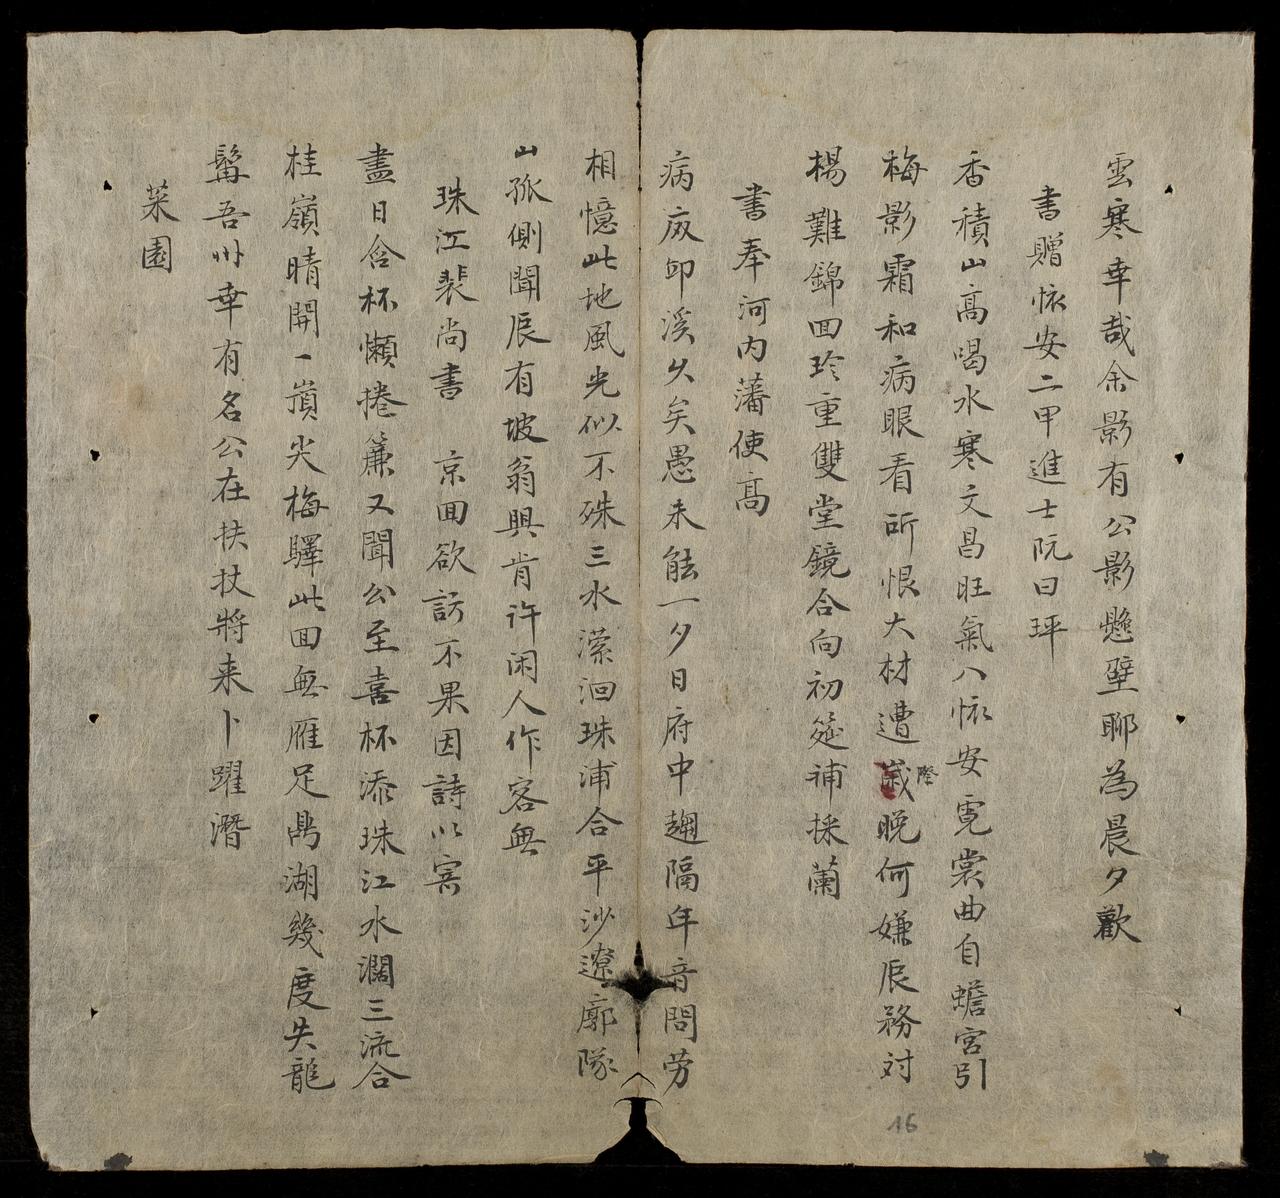 雲寒幸哉余影有公影懸壁聊為晨夕歡
書贈懷安二甲進士阮曰玶
香積山高喝水寒文昌旺氣八懷安霓裳曲自蟾宮引
梅影霜和病眼看所恨大材遭歲晚何嫌辰務対
隆
楊難錦回珍重雙堂鏡合向初筵補採蘭
書奉河內藩使高
病疢卬溪久矣愚未能一夕日府中趣隔年音問劳
相憶此地風光似不殊三水瀠洄珠浦合平沙遼廓隊
山孤側聞辰有坡翁興肯許闲人作客無
珠江裴尚書 京回欲訪不果因詩以寄
盡日含杯懶捲簾又聞公至喜杯添珠江水濶三流合
桂嶺晴開一嶺尖梅驛此回無雁足鼎湖幾度失龍
髯吾州幸有名公在扶杖將来卜躍潛
菜園
16